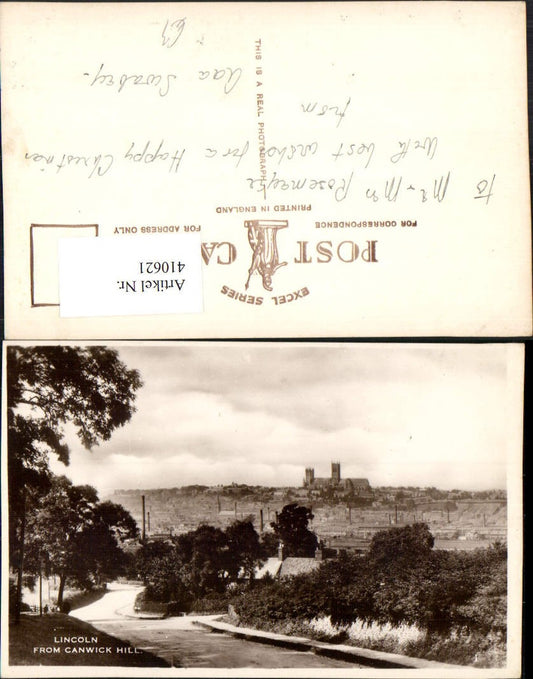 EXCEL SERIES
POST CA
FOR CORRESPONDENCE
FOR ADDRESS ONLY
PRINTED IN ENGLAND
THIS IS A REAL PHOTOGRAPH
Artikel Nr.
410621
To Mr & Mrs
With best wishes for a Happy Christmas
from
Swabey.
LINCOLN
FROM CANWICK HILL.